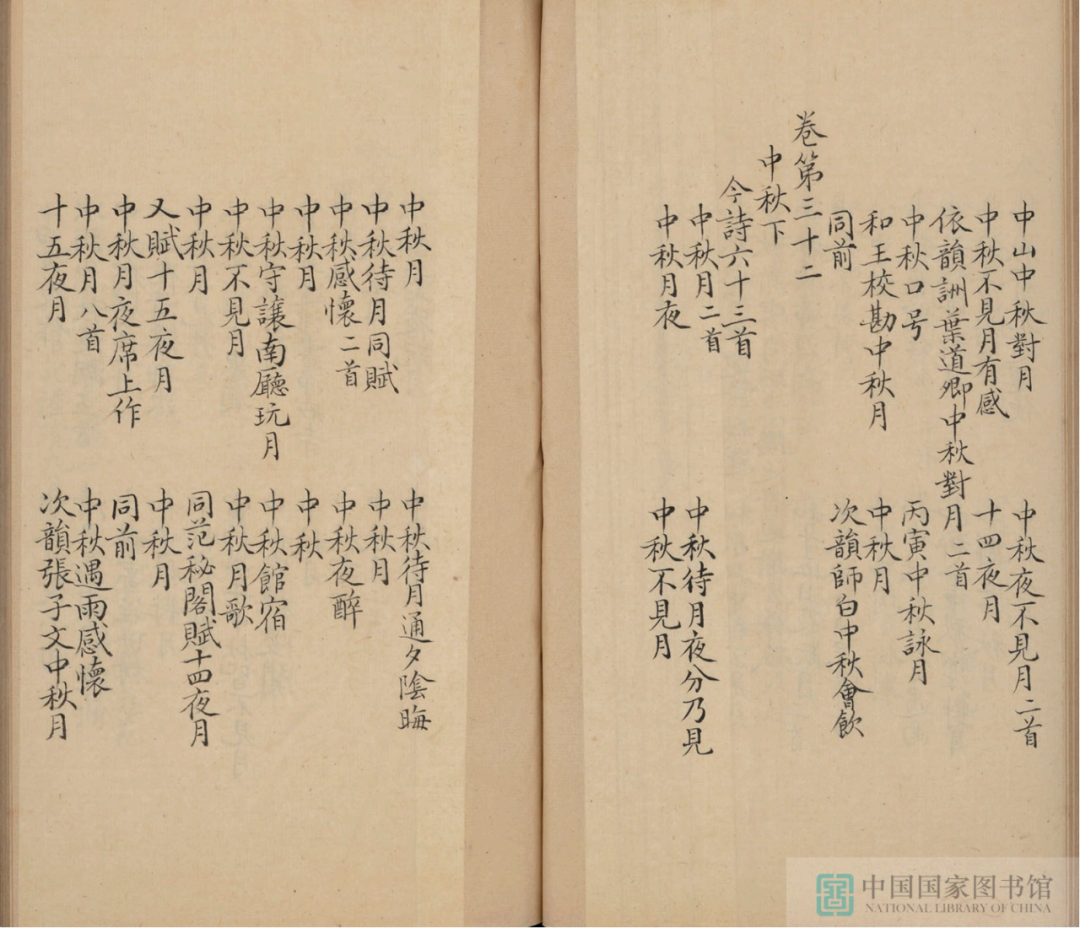 中山中秋對月　中秋夜不見月二首
中秋不見月有感　十四夜月
依韻詶葉道卿中秋對月二首
中秋口号　丙寅中秋詠月
和王校勘中秋月　中秋月
同前　次韻師白中秋會飲
卷第三十二
中秋下
今詩六十三首
中秋月二首　中秋待月夜分乃見
中秋月夜　中秋不見月
中秋月　中秋待月通夕陰晦
中秋待月同賦　中秋月
中秋感懷二首　中秋夜醉
中秋月　中秋
中秋守讓南廳玩月　中秋館宿
中秋不見月　中秋月歌
中秋月　同范秘閣賦十四夜月
又賦十五夜月　中秋月
中秋月夜席上作　同前
中秋月八首　中秋遇雨感懷
十五夜月　次韻張子文中秋月
中国国家图书馆
NATIONAL LIBRARY OF CHINA